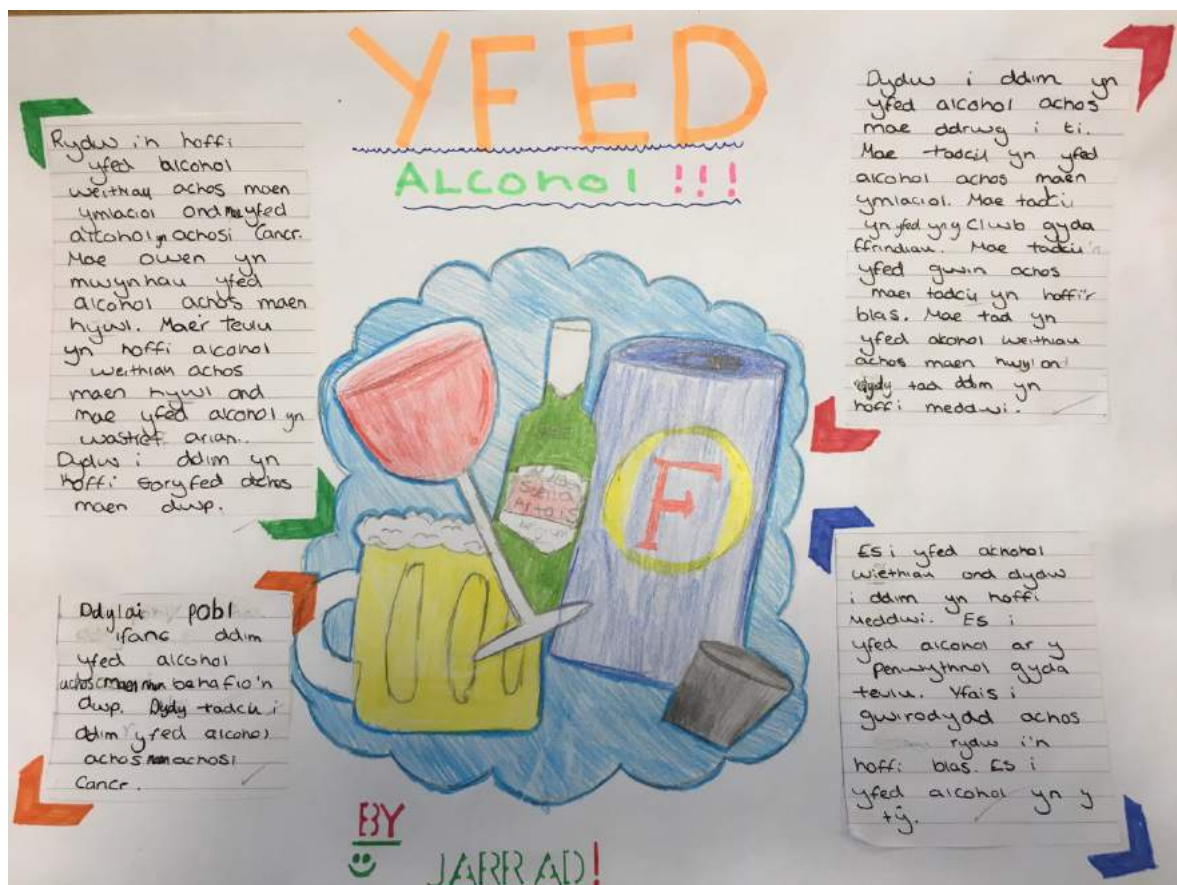 YFED
ALCOHOL !!!
Rydw i'n hoffi
yfed alcohol
weithiau achos maen
ymlaciol ond mae yfed
alcohol yn achosi Cancr.
Mae owen yn
mwynhau yfed
alcohol achos maen
hywl. Maer teulu
yn hoffi alcohol
weithiau achos
maen hywl and
mae yfed alcohol yn
wastref arian.
Dydw i ddim yn
hoffi goryfed achos
maen dwp.
Ddylai pobl
ifanc ddim
yfed alcohol
achos behafio'n
dwp. Dydy tadcu i
ddim yfed alcohol
achos achosi
Cancr.
Stella
Artois
F
Dydw i ddim yn
yfed alcohol achos
mae ddrwg i ti.
Mae tadcu yn yfed
alcohol achos maen
ymlaciol. Mae tadcu
yn yfed yn y Clwb gyda
ffrindiau. Mae tadcu'n
yfed gwin achos
mae tadcu yn hoffi'r
blas. Mae tad yn
yfed akohol weithiau
achos maen hwyl ond
dydy tad ddim yn
hoffi meddwi.
ES i yfed achohol
wiethiau ond dydw
i ddim yn hoffi
meddwi. Es i
yfed alcohol ar y
penwythnol gyda
teulu. Yfais i
gwirodydd achos
rydw i'n
hoffi blas. Es i
yfed alcohol yn y
tŷ.
BY
JARRAD!